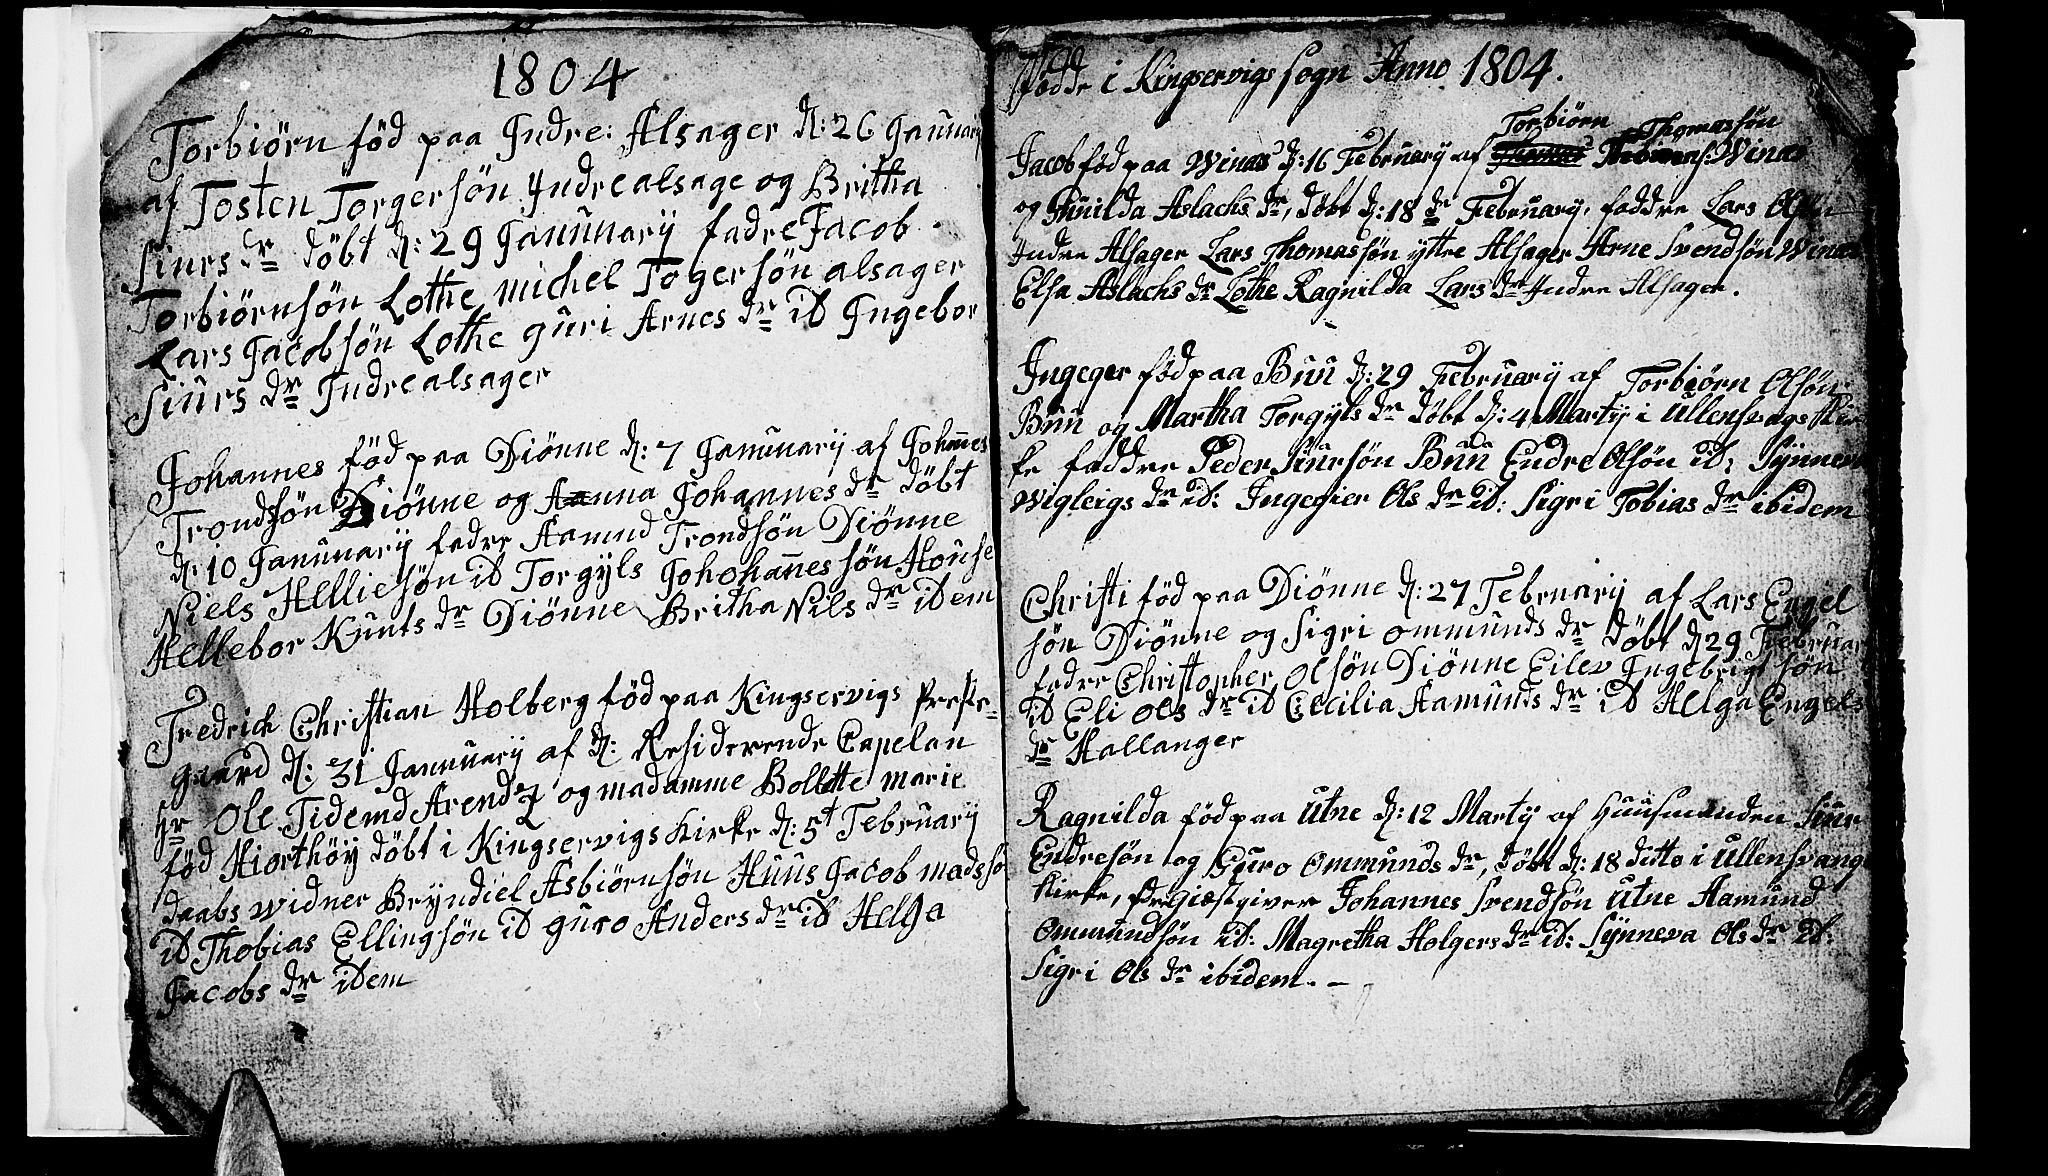 1804
Torbiörn föd paa Indre: Alsager d: 26 Januarÿ
af Tosten Torgersön Yndrealsage og Britha
Siurs dr döbt d: 29 Januuarÿ fadre Jacob
Torbiörnsön Lothe michel Togersön alsager
Lars Jacobsön Lothe guri Arnes dr id Ingebor
Siurs dr Indrealsager
Johannes föd paa Diönne d: 7 Januuarÿ af Johannes
Trondsön Diönne og Anna Johannes dr döbt
d: 10 Januuarÿ fadre Aamnd Trondsön Diönne
Niels Helliesön id Torgÿls Johohannes sön House
Hellebor Knuts dr Diönne Britha Nils dr idem
Fredrich Christian Holberg föd paa Kingservigs Preste-
gaard d: 31 Januuarÿ af d: Residerende Capelan
Hr Ole Tidemd Arendz og madamme Bollette marie
föd Hiorthöÿ döbt i Kingservigs Kirke d: 5t Februarÿ
daabs widner Brÿndiel Asbiörnsön Huus Jacob madssö
id Thobias Ellingsön id guro Anders dr id Helga
Jacobs dr idem
Födde i Kingservigs sogn Anno 1804.
Torbiörn Thomassön
Jacob föd paa Winæs d: 16 Februarÿ af Winæs
og Gunilda Aslachs dr, döbt d: 18 de Februarÿ, faddre Lars Olsön
Indre Alsager Lars Thomassön ÿttre Alsager Arne Svendsön Winæs
Elsa Aslachs dr Lothe Ragnilda Lars dr Indre Alsager.
Ingeger föd paa Buu d: 29 Februarÿ af Torbiörn Olsön
Buu og Martha Torgÿls dr döbt d: 4 Martÿ i Ullensvags Kir
ke faddre Peder Siursön Buu Endre Olsön id: Sÿnneva
Wigleigs dr id: Ingegier Ols dr id: Sigri Tobias dr ibidem
Christi föd paa Diönne d: 27 Februarÿ af Lars Engel
sön Diönne og Sigri ommunds dr döbt d 29 Februar
fadre Christopher Olsön Diönne Eilev Ingebrigt sön
id Eli Ols dr id Cicilia Aamunds dr id Helga Engels
dr Hallanger
Ragnilda föd paa Utne d: 12 Martÿ af Huusmanden Siur
Endresön og Guro Ommunds dr, döbt d: 18 ditto i Ullensvang
Kirke, Giæstgiver Johannes Svendsön Utne Aamund
Ommundsön id: Magretha Holgers dr id: Sÿnneva Ols dr id:
Sigri Ols dr ibidem. -